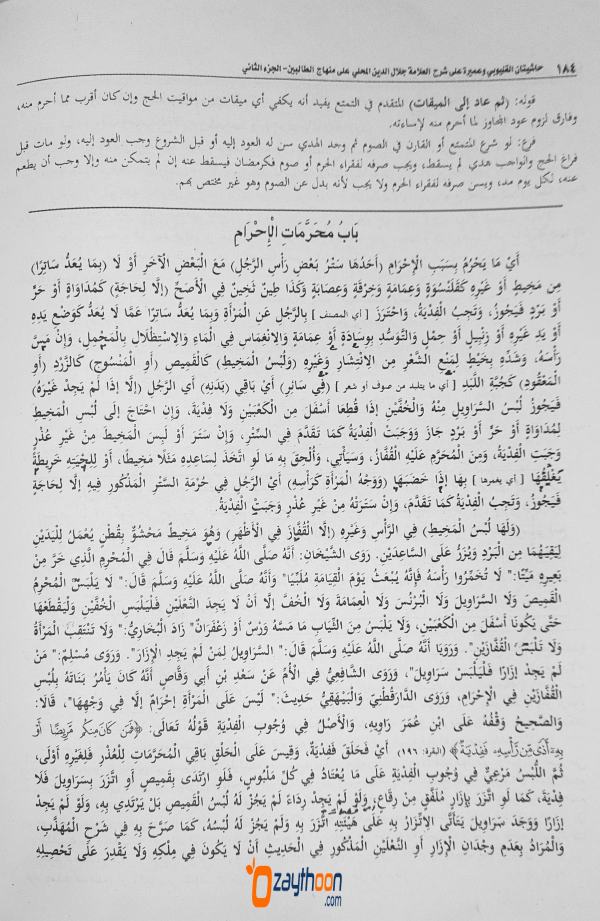 ١٨٤ حاشيتان القليوبي وعميرة على شرح العلامة جلال الدين المحلي على منهاج الطالبين - الجزء الثاني
قوله: (ثم عاد إلى الميقات) المتقدم في التمتع يفيد أنه يكفي أي ميقات من مواقيت الحج وإن كان أقرب مما أحرم منه،
وفارق لزوم عود المجاوز لما أحرم منه لإساءته.
فرع: لو شرع المتمتع أو القارن في الصوم ثم وجد الهدي سن له العود إليه أو قبل الشروع وجب العود إليه، ولو مات قبل
فراغ الحج والواجب هدي لم يسقط، ويجب صرفه لفقراء الحرم أو صوم فكرمضان فيسقط عنه إن لم يتمكن منه وإلا وجب أن يطعم
عنه، لكل يوم مد، ويسن صرفه لفقراء الحرم ولا يجب لأنه بدل عن الصوم وهو غير مختص بهم.
بَابُ مُحَرَّمَاتِ الْإِحْرَامِ
أَيْ مَا يَحْرُمُ بِسَبَبِ الْإِحْرَامِ (أَحَدُهَا سَتْرُ بَعْضِ رَأْسِ الرَّجُلِ) مَعَ الْبَعْضِ الْآخَرِ أَوْ لَا (بِمَا يُعَدُّ سَاتِرًا)
مِنْ مَخِيطٍ أَوْ غَيْرِهِ كَقَلَنْسُوَةٍ وَعِمَامَةٍ وَخِرْقَةٍ وَعِصَابَةٍ وَكَذَا طِينٌ ثَخِينٌ فِي الْأَصَحِّ (إلَّا لِحَاجَةٍ) كَمُدَاوَاةٍ أَوْ حَرٍّ
أَوْ بَرْدٍ فَيَجُوزُ، وَتَجِبُ الْفِدْيَةُ، وَاحْتَرَزَ [أي المصنف] بِالرَّجُلِ عَنِ الْمَرْأَةِ وَبِمَا يُعَدُّ سَاتِرًا عَمَّا لَا يُعَدُّ كَوَضْعِ يَدِهِ
أَوْ يَدِ غَيْرِهِ أَوْ زِنْبِيلٍ أَوْ حِمْلٍ وَالتَّوَسُّدِ بِوِسَادَةٍ أَوْ عِمَامَةٍ وَالِانْغِمَاسِ فِي الْمَاءِ وَالِاسْتِظْلَالِ بِالْمَحْمِلِ، وَإِنْ مَسَّ
رَأْسَهُ، وَشَدِّهِ بِخَيْطٍ لِمَنْعِ الشَّعْرِ مِنَ الِانْتِشَارِ وَغَيْرِهِ (وَلُبْسُ الْمَخِيطِ) كَالْقَمِيصِ (أَوِ الْمَنْسُوجِ) كَالزَّرْدِ (أَوِ
الْمَعْقُودِ) كَجُبَّةِ اللَّبَدِ [أي ما يتلبد من صوف او شعر] (فِي سَائِرِ) أَيْ بَاقِي (بَدَنِهِ) أَيِ الرَّجُلِ (إلَّا إذَا لَمْ يَجِدْ غَيْرَهُ)
فَيَجُوزُ لُبْسُ السَّرَاوِيلِ مِنْهُ وَالْخُفَّيْنِ إذَا قُطِعَا أَسْفَلَ مِنَ الْكَعْبَيْنِ وَلَا فِدْيَةَ، وَإِنِ احْتَاجَ إلَى لُبْسِ الْمَخِيطِ
لِمُدَاوَاةٍ أَوْ حَرٍّ أَوْ بَرْدٍ جَازَ وَوَجَبَتْ الْفِدْيَةُ كَمَا تَقَدَّمَ فِي السِّتْرِ، وَإِنْ سَتَرَ أَوْ لَبِسَ الْمَخِيطَ مِنْ غَيْرِ عُذْرٍ
وَجَبَتِ الْفِدْيَةُ، وَمِنَ الْمُحَرَّمِ عَلَيْهِ الْقُفَّازُ، وَسَيَأْتِي، وَأُلْحِقَ بِهِ مَا لَوِ اتَّخَذَ لِسَاعِدِهِ مَثَلًا مَخِيطًا، أَوْ لِلِحْيَتِهِ خَرِيطَةً
يُغَلِّفُهَا بِهَا إذَا خَضَبَهَا (وَوَجْهُ الْمَرْأَةِ كَرَأْسِهِ) أَيْ الرَّجُلِ فِي حُرْمَةِ السَّتْرِ الْمَذْكُورِ فِيهِ إلَّا لِحَاجَةٍ
فَيَجُوزُ، وَتَجِبُ الْفِدْيَةُ كَمَا تَقَدَّمَ، وَإِنْ سَتَرَتْهُ مِنْ غَيْرِ عُذْرٍ وَجَبَتْ الْفِدْيَةُ.
(وَلَهَا لُبْسُ الْمَخِيطِ) فِي الرَّأْسِ وَغَيْرِهِ (إلَّا الْقُفَّازَ فِي الْأَظْهَرِ) وَهُوَ مَخِيطٌ مَحْشُوٌّ بِقُطْنٍ يُعْمَلُ لِلْيَدَيْنِ
لِيَقِيَهُمَا مِنَ الْبَرْدِ وَيُزَرُّ عَلَى السَّاعِدَيْنِ. رَوَى الشَّيْخَانِ: أَنَّهُ صَلَّى اللَّهُ عَلَيْهِ وَسَلَّمَ قَالَ فِي الْمُحْرِمِ الَّذِي خَرَّ مِنْ
بَعِيرِهِ مَيِّتًا: " لَا تُخَمِّرُوا رَأْسَهُ فَإِنَّهُ يُبْعَثُ يَوْمَ الْقِيَامَةِ مُلَبِّيًا" وَأَنَّهُ صَلَّى اللَّهُ عَلَيْهِ وَسَلَّمَ قَالَ: " لَا يَلْبَسُ الْمُحْرِمُ
الْقَمِيصَ وَلَا السَّرَاوِيلَ وَلَا الْبُرْنُسَ وَلَا الْعِمَامَةَ وَلَا الْخُفَّ إلَّا أَنْ لَا يَجِدَ النَّعْلَيْنِ فَلْيَلْبَسِ الْخُفَّيْنِ وَلْيَقْطَعْهَا
حَتَّى يَكُونَا أَسْفَلَ مِنِ الْكَعْبَيْنِ، وَلَا يَلْبَسُ مِنَ الثِّيَابِ مَا مَسَّهُ وَرْسٌ أَوْ زَعْفَرَانٌ" زَادَ الْبُخَارِيُّ: " وَلَا تَنْتَقِبُ الْمَرْأَةُ
وَلَا تَلْبَسُ الْقُفَّازَيْنِ". وَرَوَيَا أَنَّهُ صَلَّى اللَّهُ عَلَيْهِ وَسَلَّمَ قَالَ: " السَّرَاوِيلُ لِمَنْ لَمْ يَجِدِ الْإِزَارَ". وَرَوَى مُسْلِمٌ: " مَنْ
لَمْ يَجِدْ إزَارًا فَلْيَلْبَسْ سَرَاوِيلَ"، وَرَوَى الشَّافِعِيُّ فِي الْأُمِّ عَنْ سَعْدِ بْنِ أَبِي وَقَّاصٍ أَنَّهُ كَانَ يَأْمُرُ بَنَاتَهُ بِلُبْسِ
الْقُفَّازَيْنِ فِي الْإِحْرَامِ، وَرَوَى الدَّارَقُطْنِيُّ وَالْبَيْهَقِيُّ حَدِيثَ: " لَيْسَ عَلَى الْمَرْأَةِ إحْرَامٌ إلَّا فِي وَجْهِهَا"، قَالَا:
وَالصَّحِيحُ وَقْفُهُ عَلَى ابْنِ عُمَرَ رَاوِيهِ، وَالْأَصْلُ فِي وُجُوبِ الْفِدْيَةِ قَوْلُهُ تَعَالَى: ﴿فَمَن كَانَ مِنكُم مَّرِيضًا أَوْ
بِهِۦٓ أَذًى مِّن رَّأْسِهِۦ فَفِدْيَةٌ﴾ (البقرة: ١٩٦) أَيْ فَحَلَقَ فَفِدْيَةٌ، وَقِيسَ عَلَى الْحَلْقِ بَاقِي الْمُحَرَّمَاتِ لِلْعُذْرِ فَلِغَيْرِهِ أَوْلَى،
ثُمَّ اللُّبْسُ مَرْعِيٌّ فِي وُجُوبِ الْفِدْيَةِ عَلَى مَا يُعْتَادُ فِي كُلِّ مَلْبُوسٍ، فَلَوِ ارْتَدَى بِقَمِيصٍ أَوِ اتَّزَرَ بِسَرَاوِيلَ فَلَا
فِدْيَةَ، كَمَا لَوِ اتَّزَرَ بِإِزَارٍ مُلَفَّقٍ مِنْ رِقَاعٍ، وَلَوْ لَمْ يَجِدْ رِدَاءً لَمْ يَجُزْ لَهُ لُبْسُ الْقَمِيصِ بَلْ يَرْتَدِي بِهِ، وَلَوْ لَمْ يَجِدْ
إزَارًا وَوَجَدَ سَرَاوِيلَ يَتَأَتَّى الِاتِّزَارُ بِهِ عَلَى هَيْئَتِهِ اتَّزَرَ بِهِ وَلَمْ يَجُزْ لَهُ لُبْسُهُ، كَمَا صَرَّحَ بِهِ فِي شَرْحِ الْمُهَذَّبِ،
وَالْمُرَادُ بِعَدَمِ وِجْدَانِ الْإِزَارِ أَوِ النَّعْلَيْنِ الْمَذْكُورِ فِي الْحَدِيثِ أَنْ لَا يَكُونَ فِي مِلْكِهِ وَلَا يَقْدِرَ عَلَى تَحْصِيلِهِ
zaythoon.com